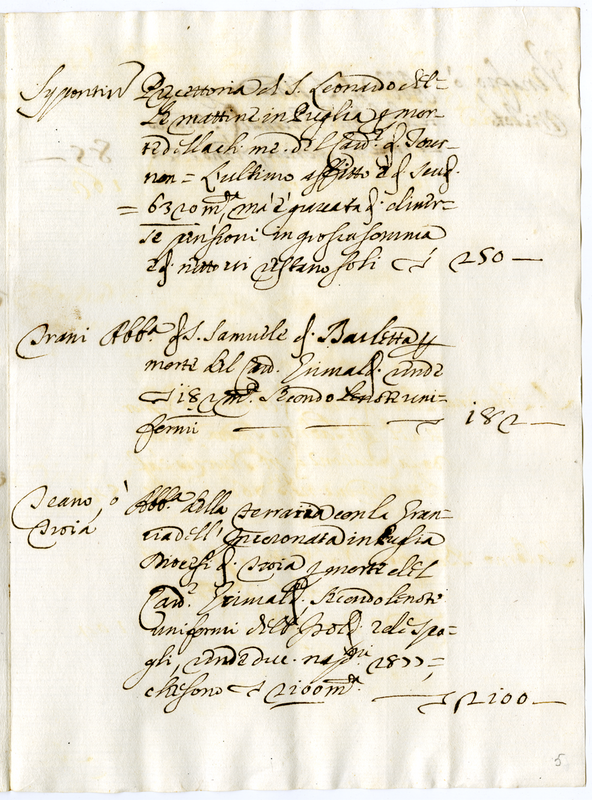 Sypontin Precettoria di S. Leonardo del-
le mattine in Puglia p mor-
te della ch. me. del Card. di Tour-
non = L'ultimo affitto è di scudi
= 6320 mta ma è gravata di diver-
se pensioni in grossa somma
e di netto vi restano soli 250 —
Trani Abba. di S. Samuele di Barletta p
morte del Card. Grimaldi rende
182 mta. secondo le note uni-
formi 182 —
Teano, ò Abba. della Ferrara con la Gran-
Troia cia dell'Incoronata in Puglia
Diocesi di Troia p morte del
Card. Grimaldi. secondo le note
uniformi dell' e de Spo-
gli, rende duc.
che sono 2100 mta. 2100 —
5